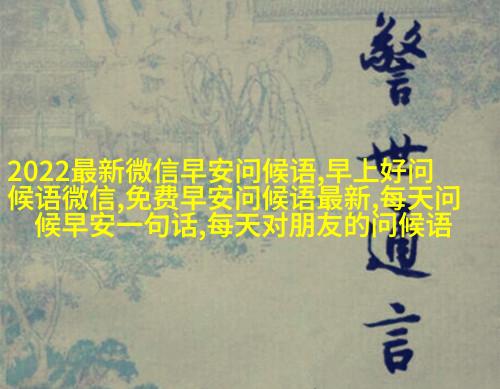 2022最新微信早安问候语,早上好问
候语微信,免费早安问候语最新,每天问
候早安一句话,每天对朋友的问候语
警世通言